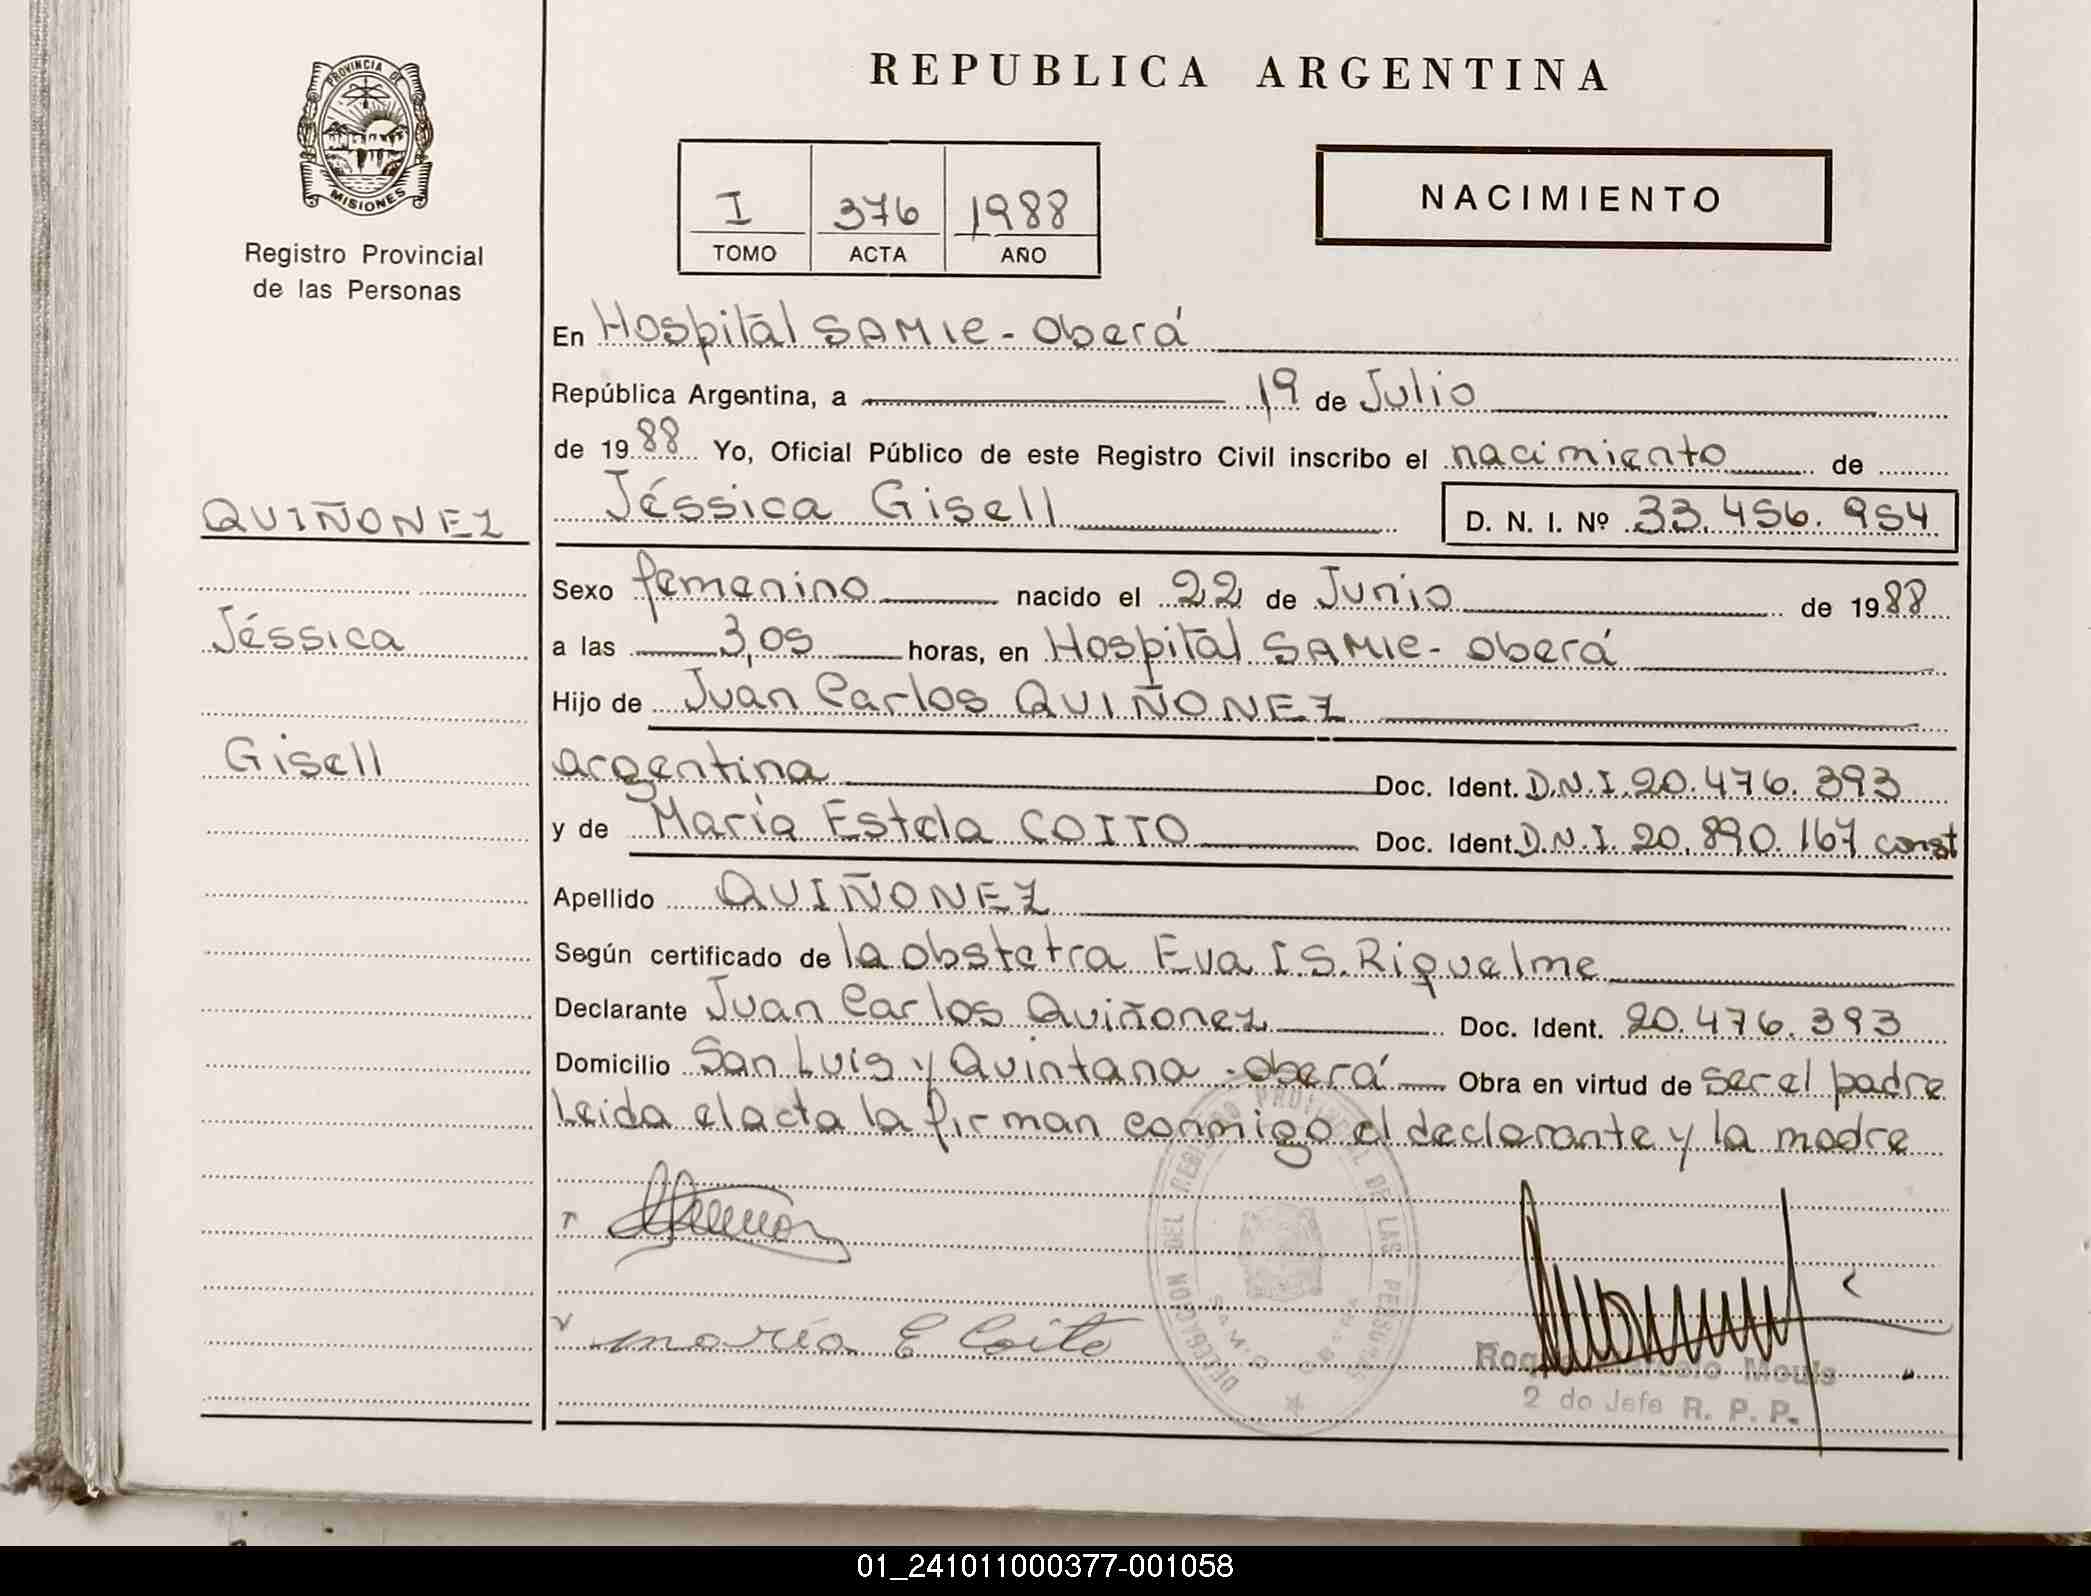 REPUBLICA ARGENTINA
PROVINCIA DE
MISIONES
Registro Provincial
de las Personas
I 376 1988
TOMO ACTA AÑO
NACIMIENTO
En Hospital SAMIC - Oberá
República Argentina, a 19 de Julio
de 1988 Yo, Oficial Público de este Registro Civil inscribo el nacimiento de
QUIÑONEZ
Jéssica
Gisell
Jéssica Gisell D. N. I. Nº 33.456.954
Sexo femenino nacido el 22 de Junio de 1988
a las 3,05 horas, en Hospital SAMIC - Oberá
Hijo de Juan Carlos QUIÑONEZ
argentina Doc. Ident. D.N.I. 20.476.393
y de María Estela COITO Doc. Ident. D.N.I. 20.890.167 const
Apellido QUIÑONEZ
Según certificado de la obstetra Eva I S. Riquelme
Declarante Juan Carlos Quiñonez Doc. Ident. 20.476.393
Domicilio San Luis y Quintana - Oberá Obra en virtud de ser el padre
Leida el acta la firman conmigo el declarante y la madre
DELEGACION DEL REGISTRO PROVINCIAL DE LAS PERSONAS
maría E Coito
Mouls
2 do Jefe R. P. P.
01_241011000377-001058